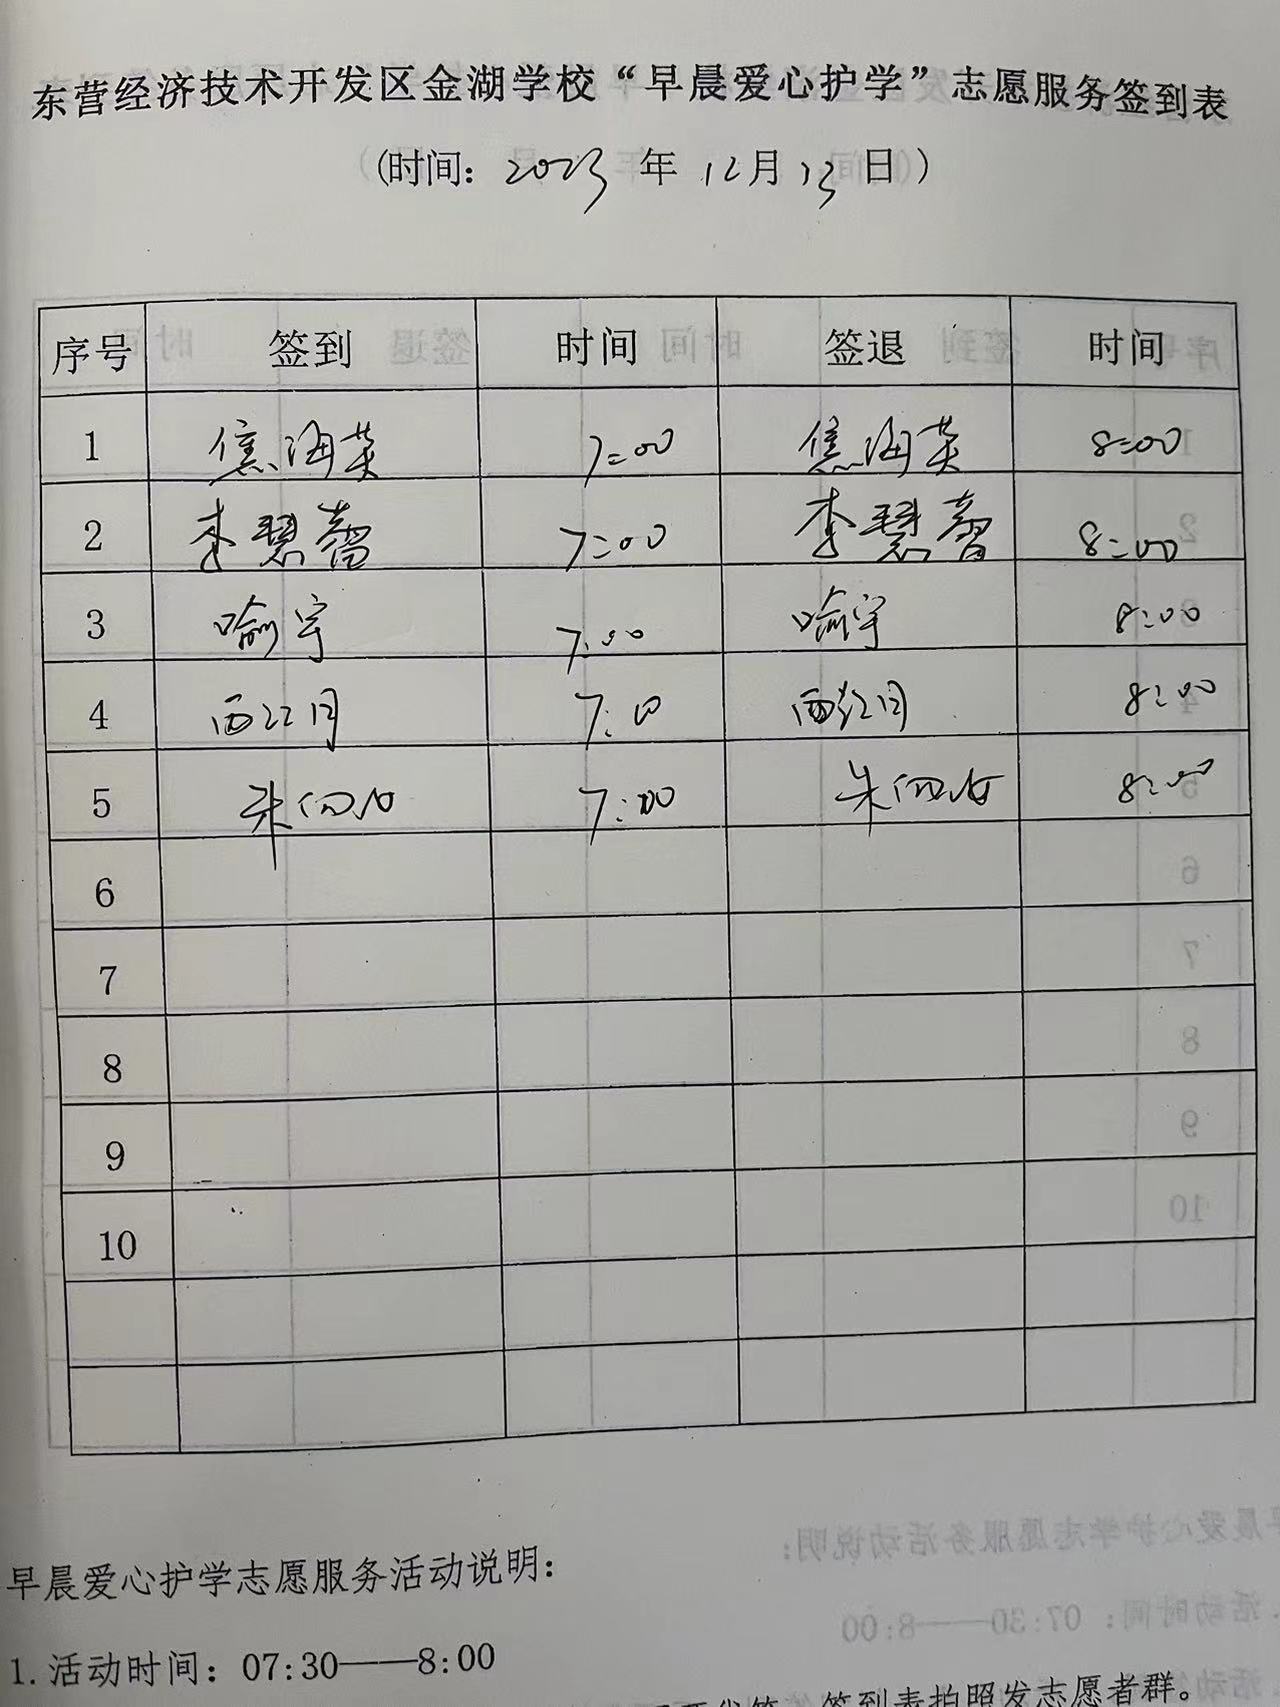 东营经济技术开发区金湖学校“早晨爱心护学”志愿服务签到表
(时间: 2023 年 12月 13 日)
序号 签到 时间 签退 时间
1 焦海英 7:00 焦海英 8:00
2 李慧 7:00 李慧 8:00
3 喻宇 7:00 喻宇 8:00
4 西江月 7:00 西江月 8:00
5 朱 7:00 朱 8:00
6
7
8
9
10
早晨爱心护学志愿服务活动说明:
1.活动时间: 07:30——8:00
签到表拍照发志愿者群。